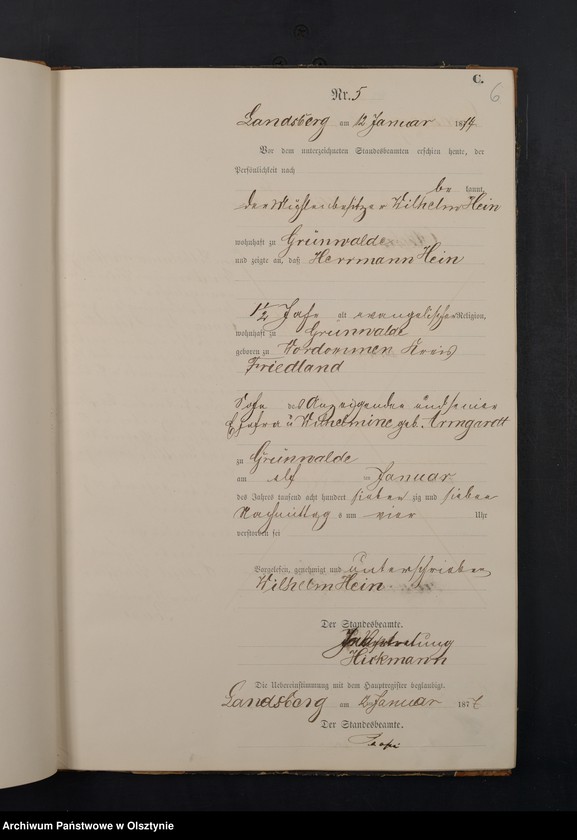 C.
6
Nr. 5
Landsberg am 12 Januar 1877
Vor dem unterzeichneten Standesbeamten erschien heute, der
Persönlichkeit nach
be kannt,
der Wilhelm Hein
wohnhaft zu Grünwalde
und zeigte an, daß Herrmann Hein
1 1/2 Jahr alt evangelischer Religion,
wohnhaft zu Grünwalde
geboren zu Wordommen Kreis
Friedland
Sohn des Anzeigenden und seiner
Ehefrau Wilhelmine geb. Armgardt
zu Grünwalde
am elf ten Januar
des Jahrs tausend acht hundert sieben zig und sieben
Nachmittag s um vier Uhr
verstorben sei
Vorgelesen, genehmigt und unterschrieben
Wilhelm Hein
Der Standesbeamte.
In Vertretung
Hickmann
Die Uebereinstimmung mit dem Hauptregister beglaubigt.
Landsberg am 12 Januar 1877
Der Standesbeamte.
Archiwum Państwowe w Olsztynie